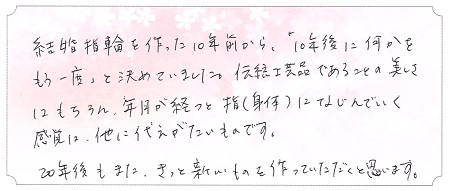 結婚指輪を作った10年前から、「10年後に何かを
もう一度」と決めていました。伝統工芸品であることの美しさ
はもちろん、年月が経つと指(身体)になじんでいく
感覚は、他に代えがたいものです。
20年後もまた、きっと新しいものを作っていただくと思います。